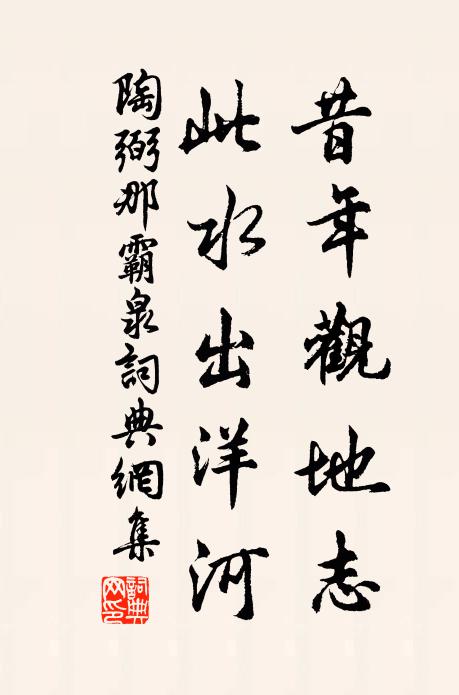 昔年觀地志
此水出洋河
陶弼那霸泉詞典網集
詞典
网印